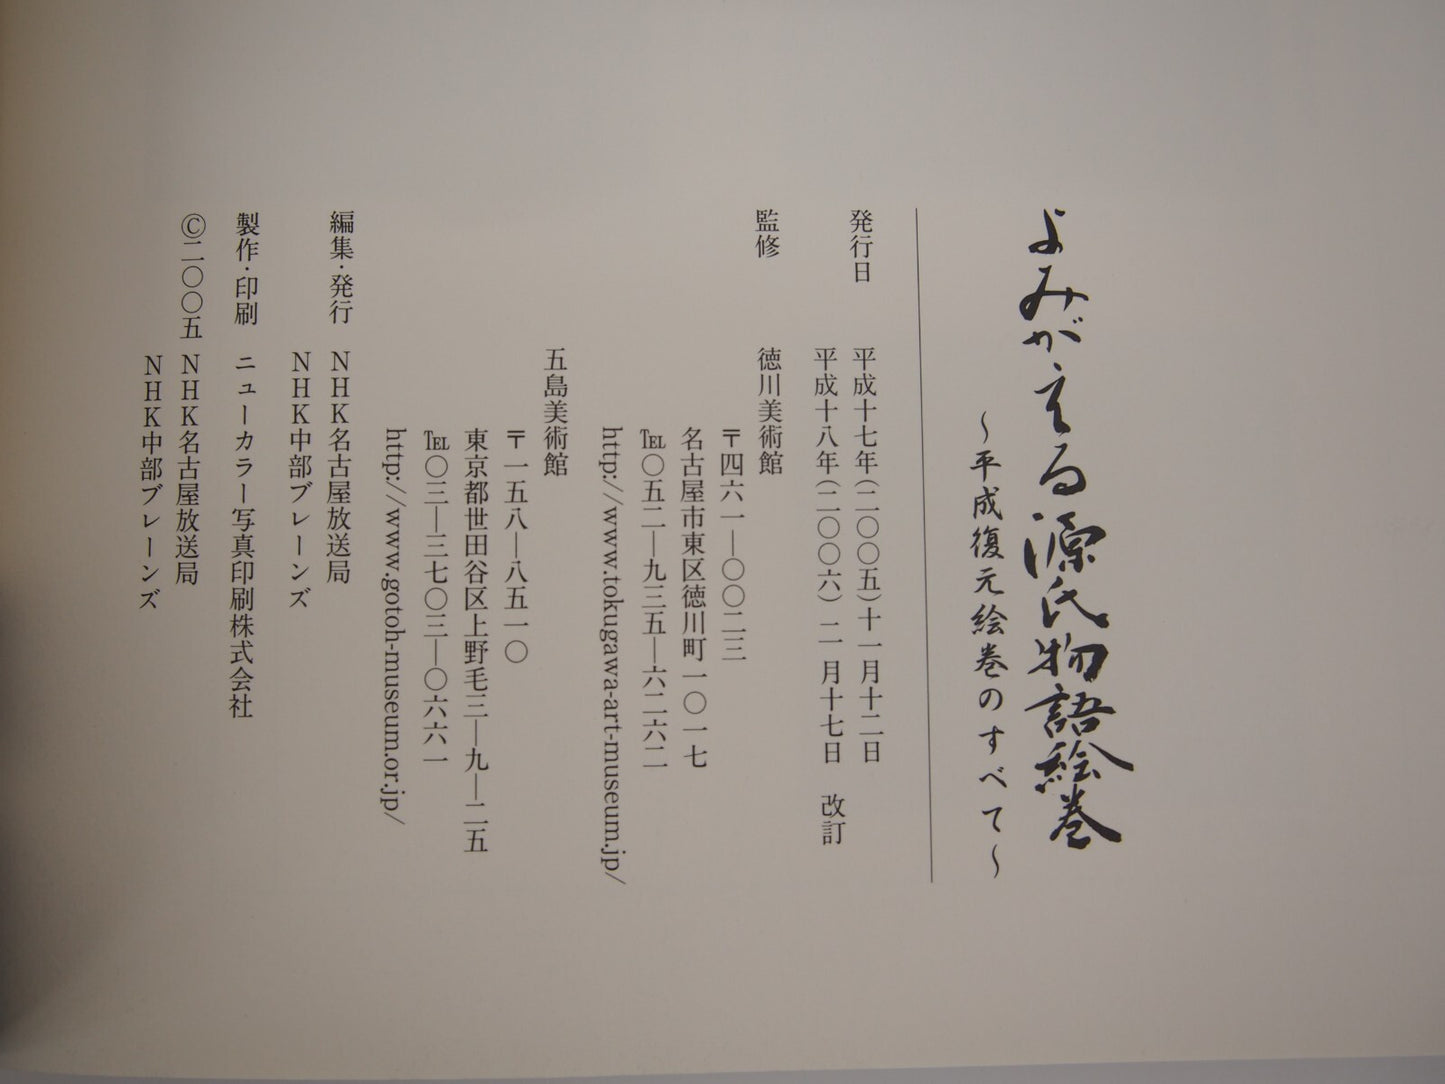 よみがえる源氏物語絵巻
～平成復元絵巻のすべて～
発行日 平成十七年(二〇〇五)十一月十二日
平成十八年(二〇〇六)二月十七日 改訂
監修 徳川美術館
〒四六一―〇〇二三
名古屋市東区徳川町一〇一七
℡〇五二―九三五―六二六二
http://www.tokugawa-art-museum.jp/
五島美術館
〒一五八―八五一〇
東京都世田谷区上野毛三―九―二五
℡〇三―三七〇三―〇六六一
http://www.gotoh-museum.or.jp/
編集・発行 NHK名古屋放送局
NHK中部ブレーンズ
製作・印刷 ニューカラー写真印刷株式会社
©二〇〇五 NHK名古屋放送局
NHK中部ブレーンズ